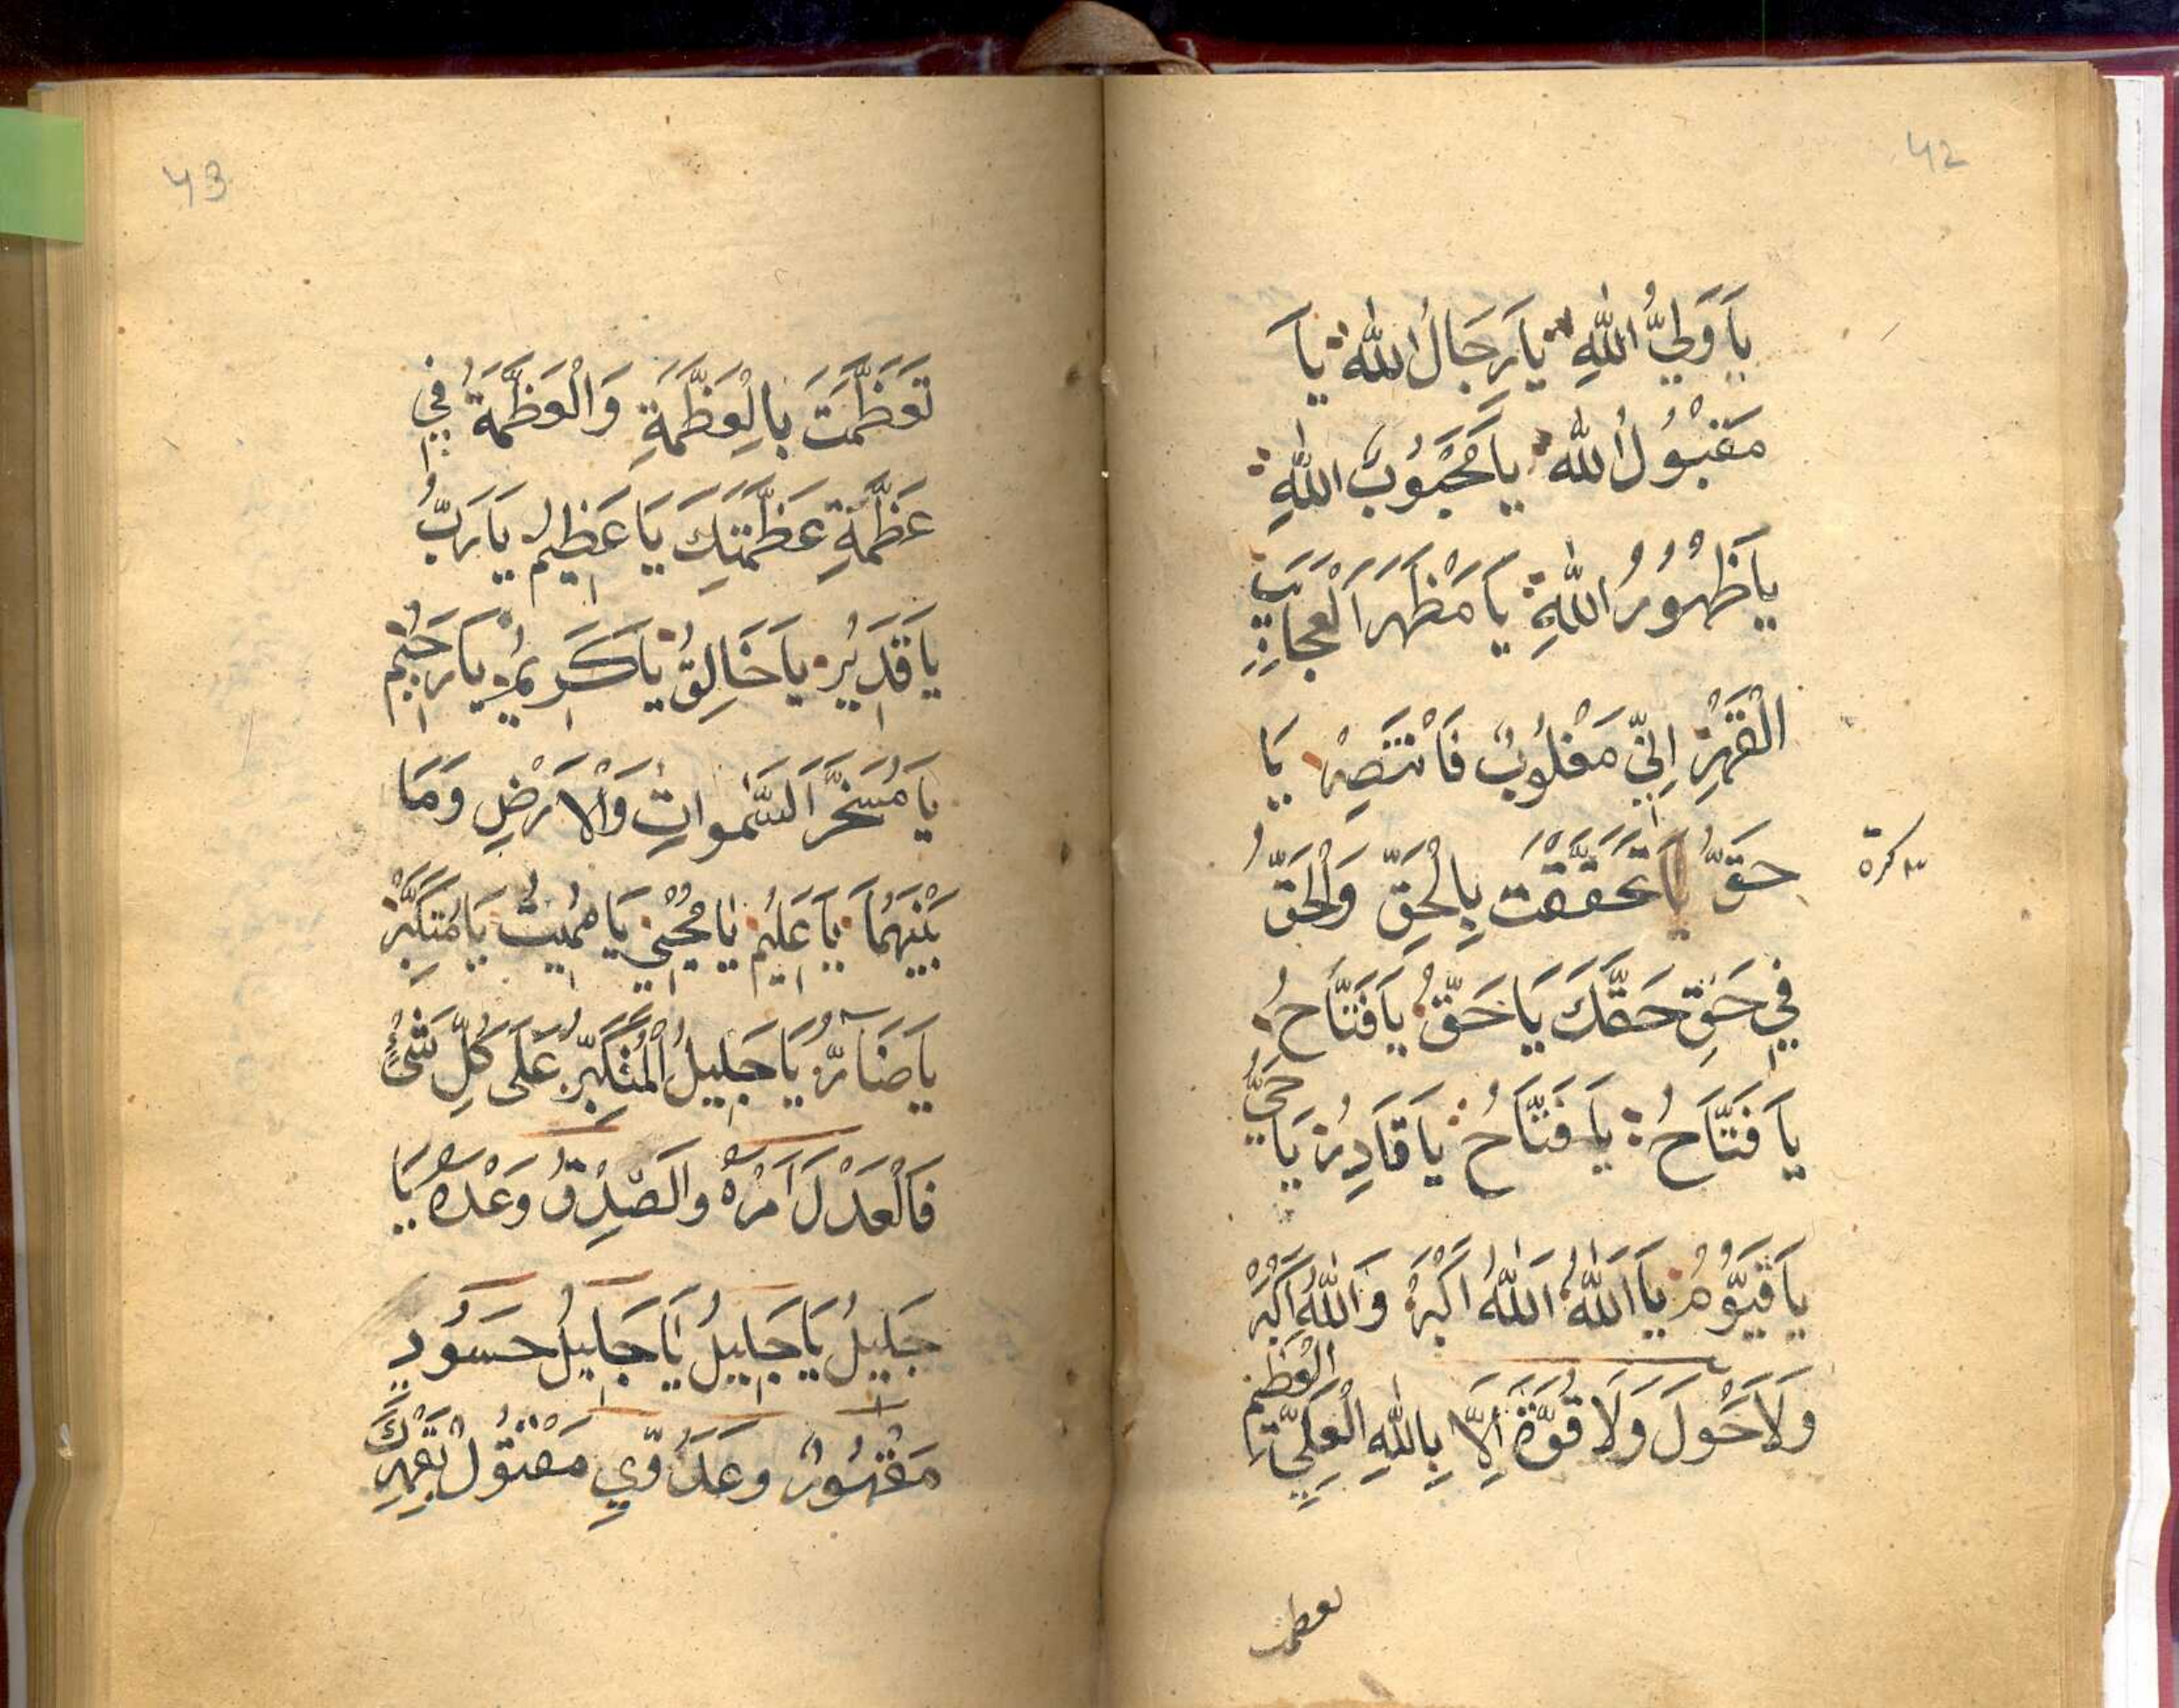 42
يَا وَلِيُّ اللّٰهِ يَا رِجَالُ اللّٰه يَا
مَقْبُوْلُ اللّٰه يَا مَحْبُوْبُ اللّٰهِ
يَا ظُهُوْرُ اللّٰهِ يَا مَظْهَرَ الْعَجَائِبِ
الْقَهْرِ اِنِّيْ مَغْلُوْبٌ فَانْتَصِرْ يَا
حَقُّ يَا تَحَقَّقْتَ بِالْحَقِّ وَالْحَقُّ
كرة
فِي حَقِّ حَقِّكَ يَا حَقُّ يَا فَتَّاحُ
يَا فَتَّاحُ يَا فَتَّاحُ يَا قَادِرُ يَا حَيُّ
يَا قَيُّوْمُ يَا اَللّٰهُ اَللّٰهُ اَكْبَرُ وَاللّٰهُ اَكْبَرْ
وَلَا حَوْلَ وَلَا قُوَّةَ اِلَّا بِاللّٰهِ الْعَلِيِّ الْعَظِيْمِ
43
تَعَظَّمْتَ بِالْعَظَّمَةِ وَالْعَظَّمَةُ فِي
عَظَّمَةِ عَظَّمَتِكَ يَا عَظِيْمُ يَا رَبُّ
يَا قَدِيْرُ يَا خَالِقُ يَا كَرِيْمُ يَا رَحِيْمُ
يَا مُسَخِّرَ السَّمٰوَاتِ وَالْاَرْضِ وَمَا
بَيْنَهُمَا يَا عَلِيْمُ يَا مُحْيِيْ يَا مُمِيْتُ يَا مُتَكَبِّرْ
يَا ضَآرُّ يَا جَلِيْلُ الْمُتَكَبِّرُ عَلَى كُلِّ شَيْءٍ
فَالْعَدْلُ اَمْرُهُ وَالصِّدْقُ وَعْدُهُ يَا
جَلِيْلُ يَا جَلِيْلُ يَا جَلِيْلُ حَسُوْدِي
مَقْهُوْرٌ وَعَدُوِّي مَقْتُوْلٌ بِقَهْرِكَ